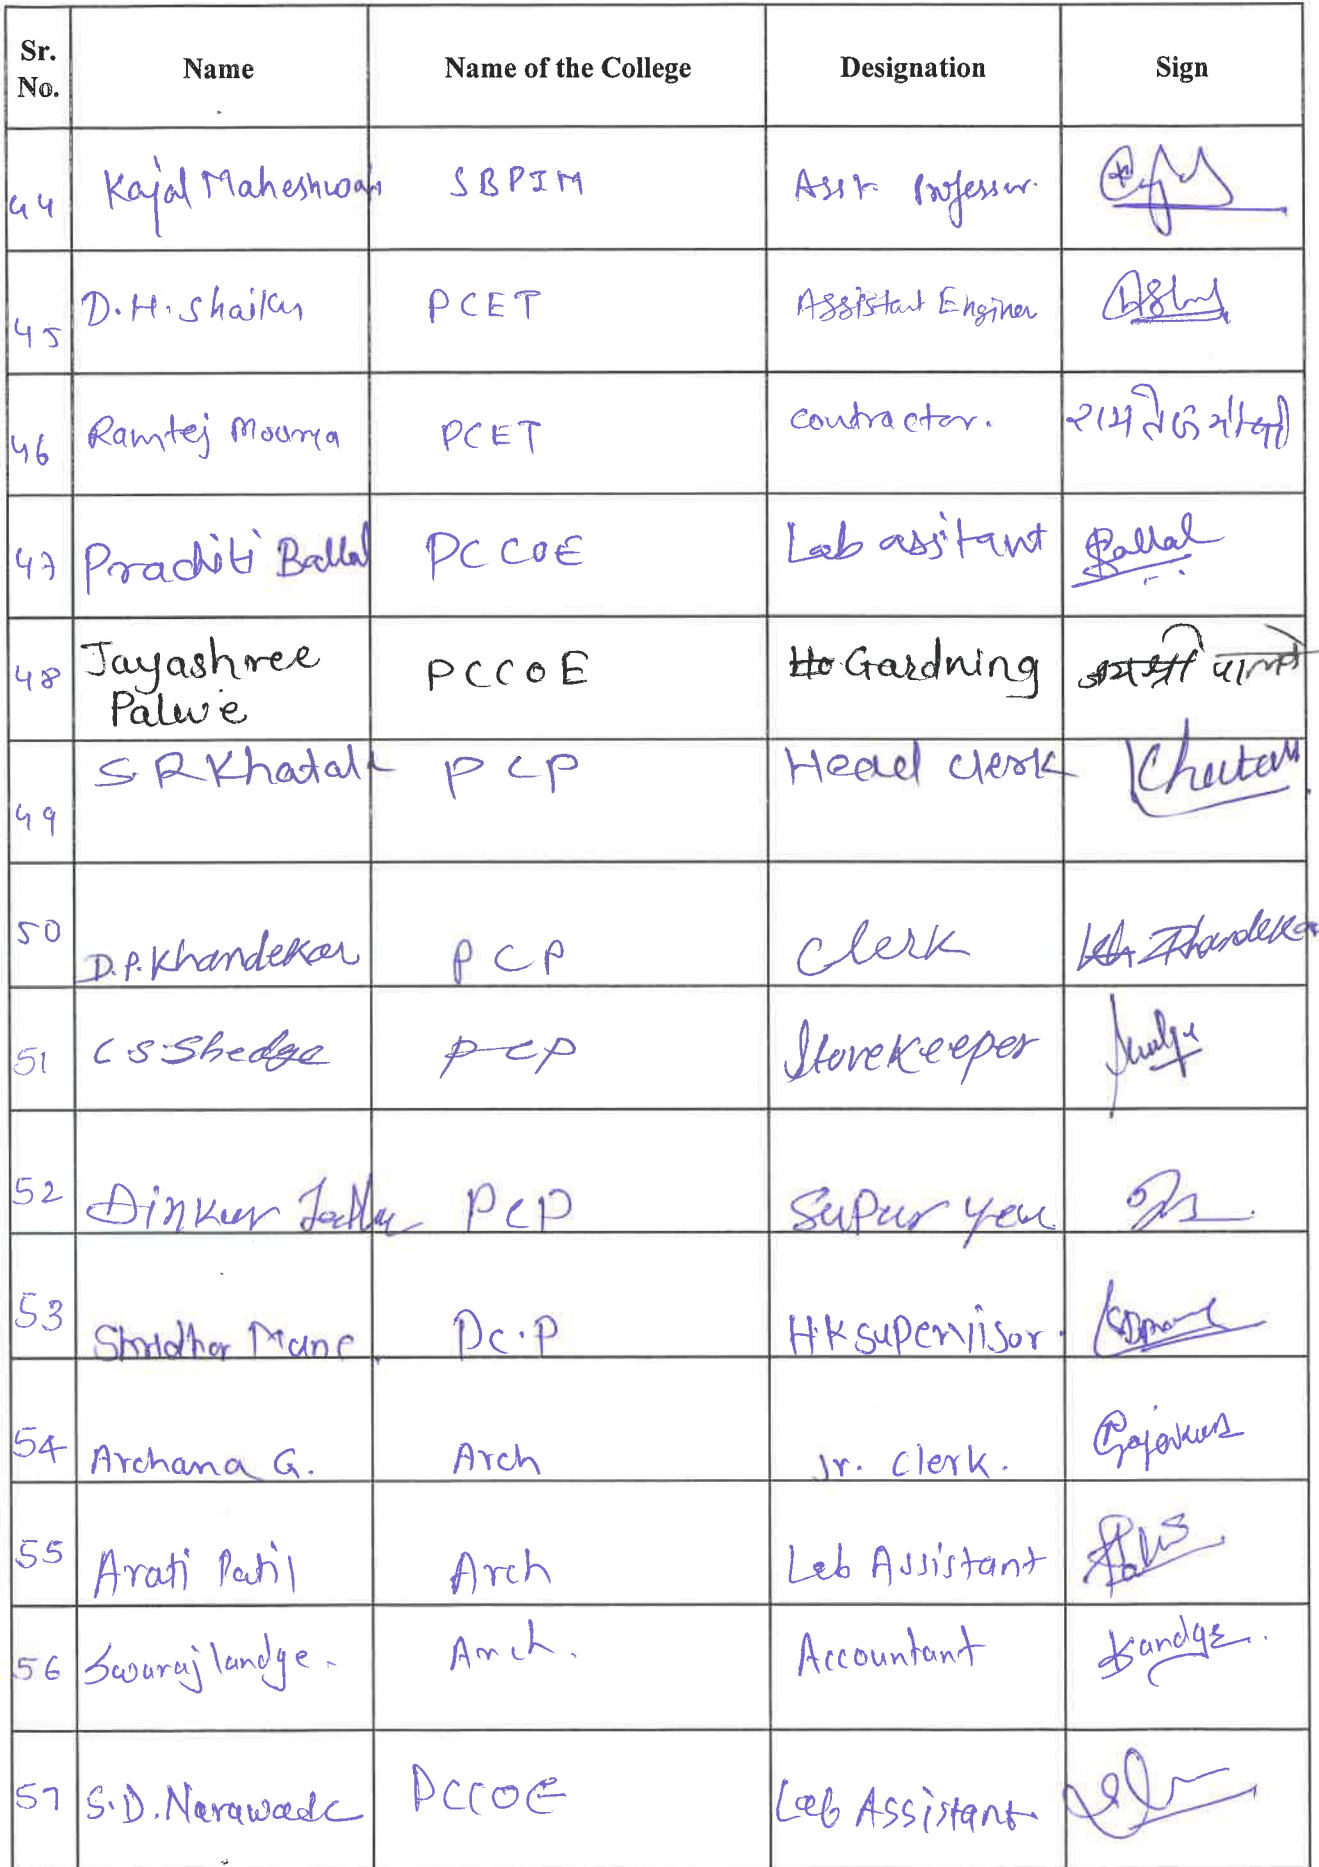 Sr. No. Name Name of the College Designation Sign
44 Kajal Maheshwari SBPIM Asst. Professor.
45 D.H. Shaikh PCET Assistant Enginer
46 Ramtej Mourya PCET contractor. रामतेज मौर्या
47 Praditi Ballal PCCOE Lab assitant Ballal
48 Jayashree Palwe PCCOE Gardning जयश्री पालवे
49 S R Khatal PCP Head clerk
50 D.P. Khandekar PCP Clerk Khandekar
51 C S Shedge PCP Storekeeper
52 Dinkar PCP
53 Shridhar Mane PC.P HK supervisor.
54 Archana G. Arch Jr. Clerk.
55 Arati Patil Arch Lab Assistant
56 Swaraj landge. Arch. Accountant Landge.
57 S.D. Narawade PCCOE Lab Assistant